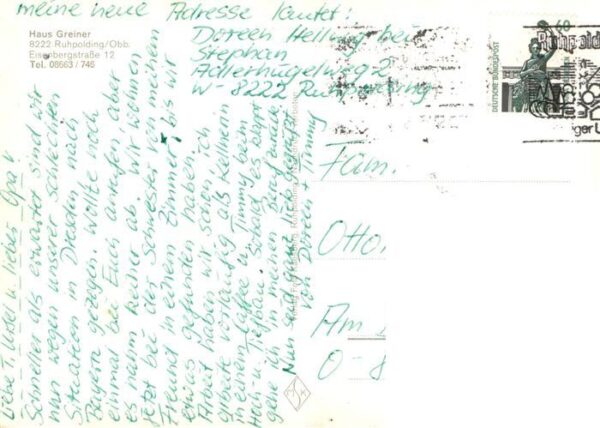 meine neue Adresse lautet:
Doreen Hellwig bei
Stephan
Adlerhügelweg 2
W-8222 Ruhpolding
Haus Greiner
8222 Ruhpolding/Obb.
Eisenbergstraße 12
Tel. 08663/746
Liebe T. Ursel u. lieber Opa!
Schneller als erwartet sind wir
nun wegen unserer schlechten
Situation in Dresden nach
Bayern gezogen. Wollte noch
einmal bei Euch anrufen, aber
es nahm keiner ab. Wir wohnen
jetzt bei der Schwester von ihrem
Freund in einem Zimmer bis wir
etwas gefunden haben.
Arbeit haben wir schon, ich
arbeite vorläufig als Kellner.
in einem Kaffee u. Timmy beim
Hoch- u. Tiefbau. Sobald es klappt
gehe ich in meinen Beruf zurück
Nun seid ganz lieb gegrüßt
von Doreen u. Timmy
60
DEUTSCHE BUNDESPOST
MÜNCHEN
Ruhpolding
Fam.
Otto
Am
O-8